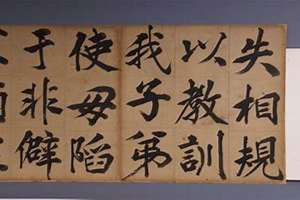 失相規
以教訓
我子弟
使毋陷
于非僻